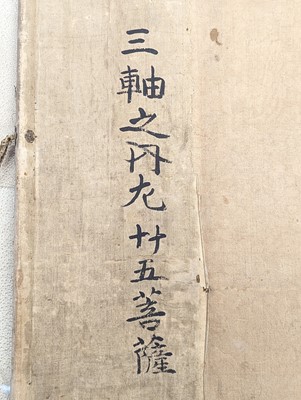 三軸之内左廿五菩薩